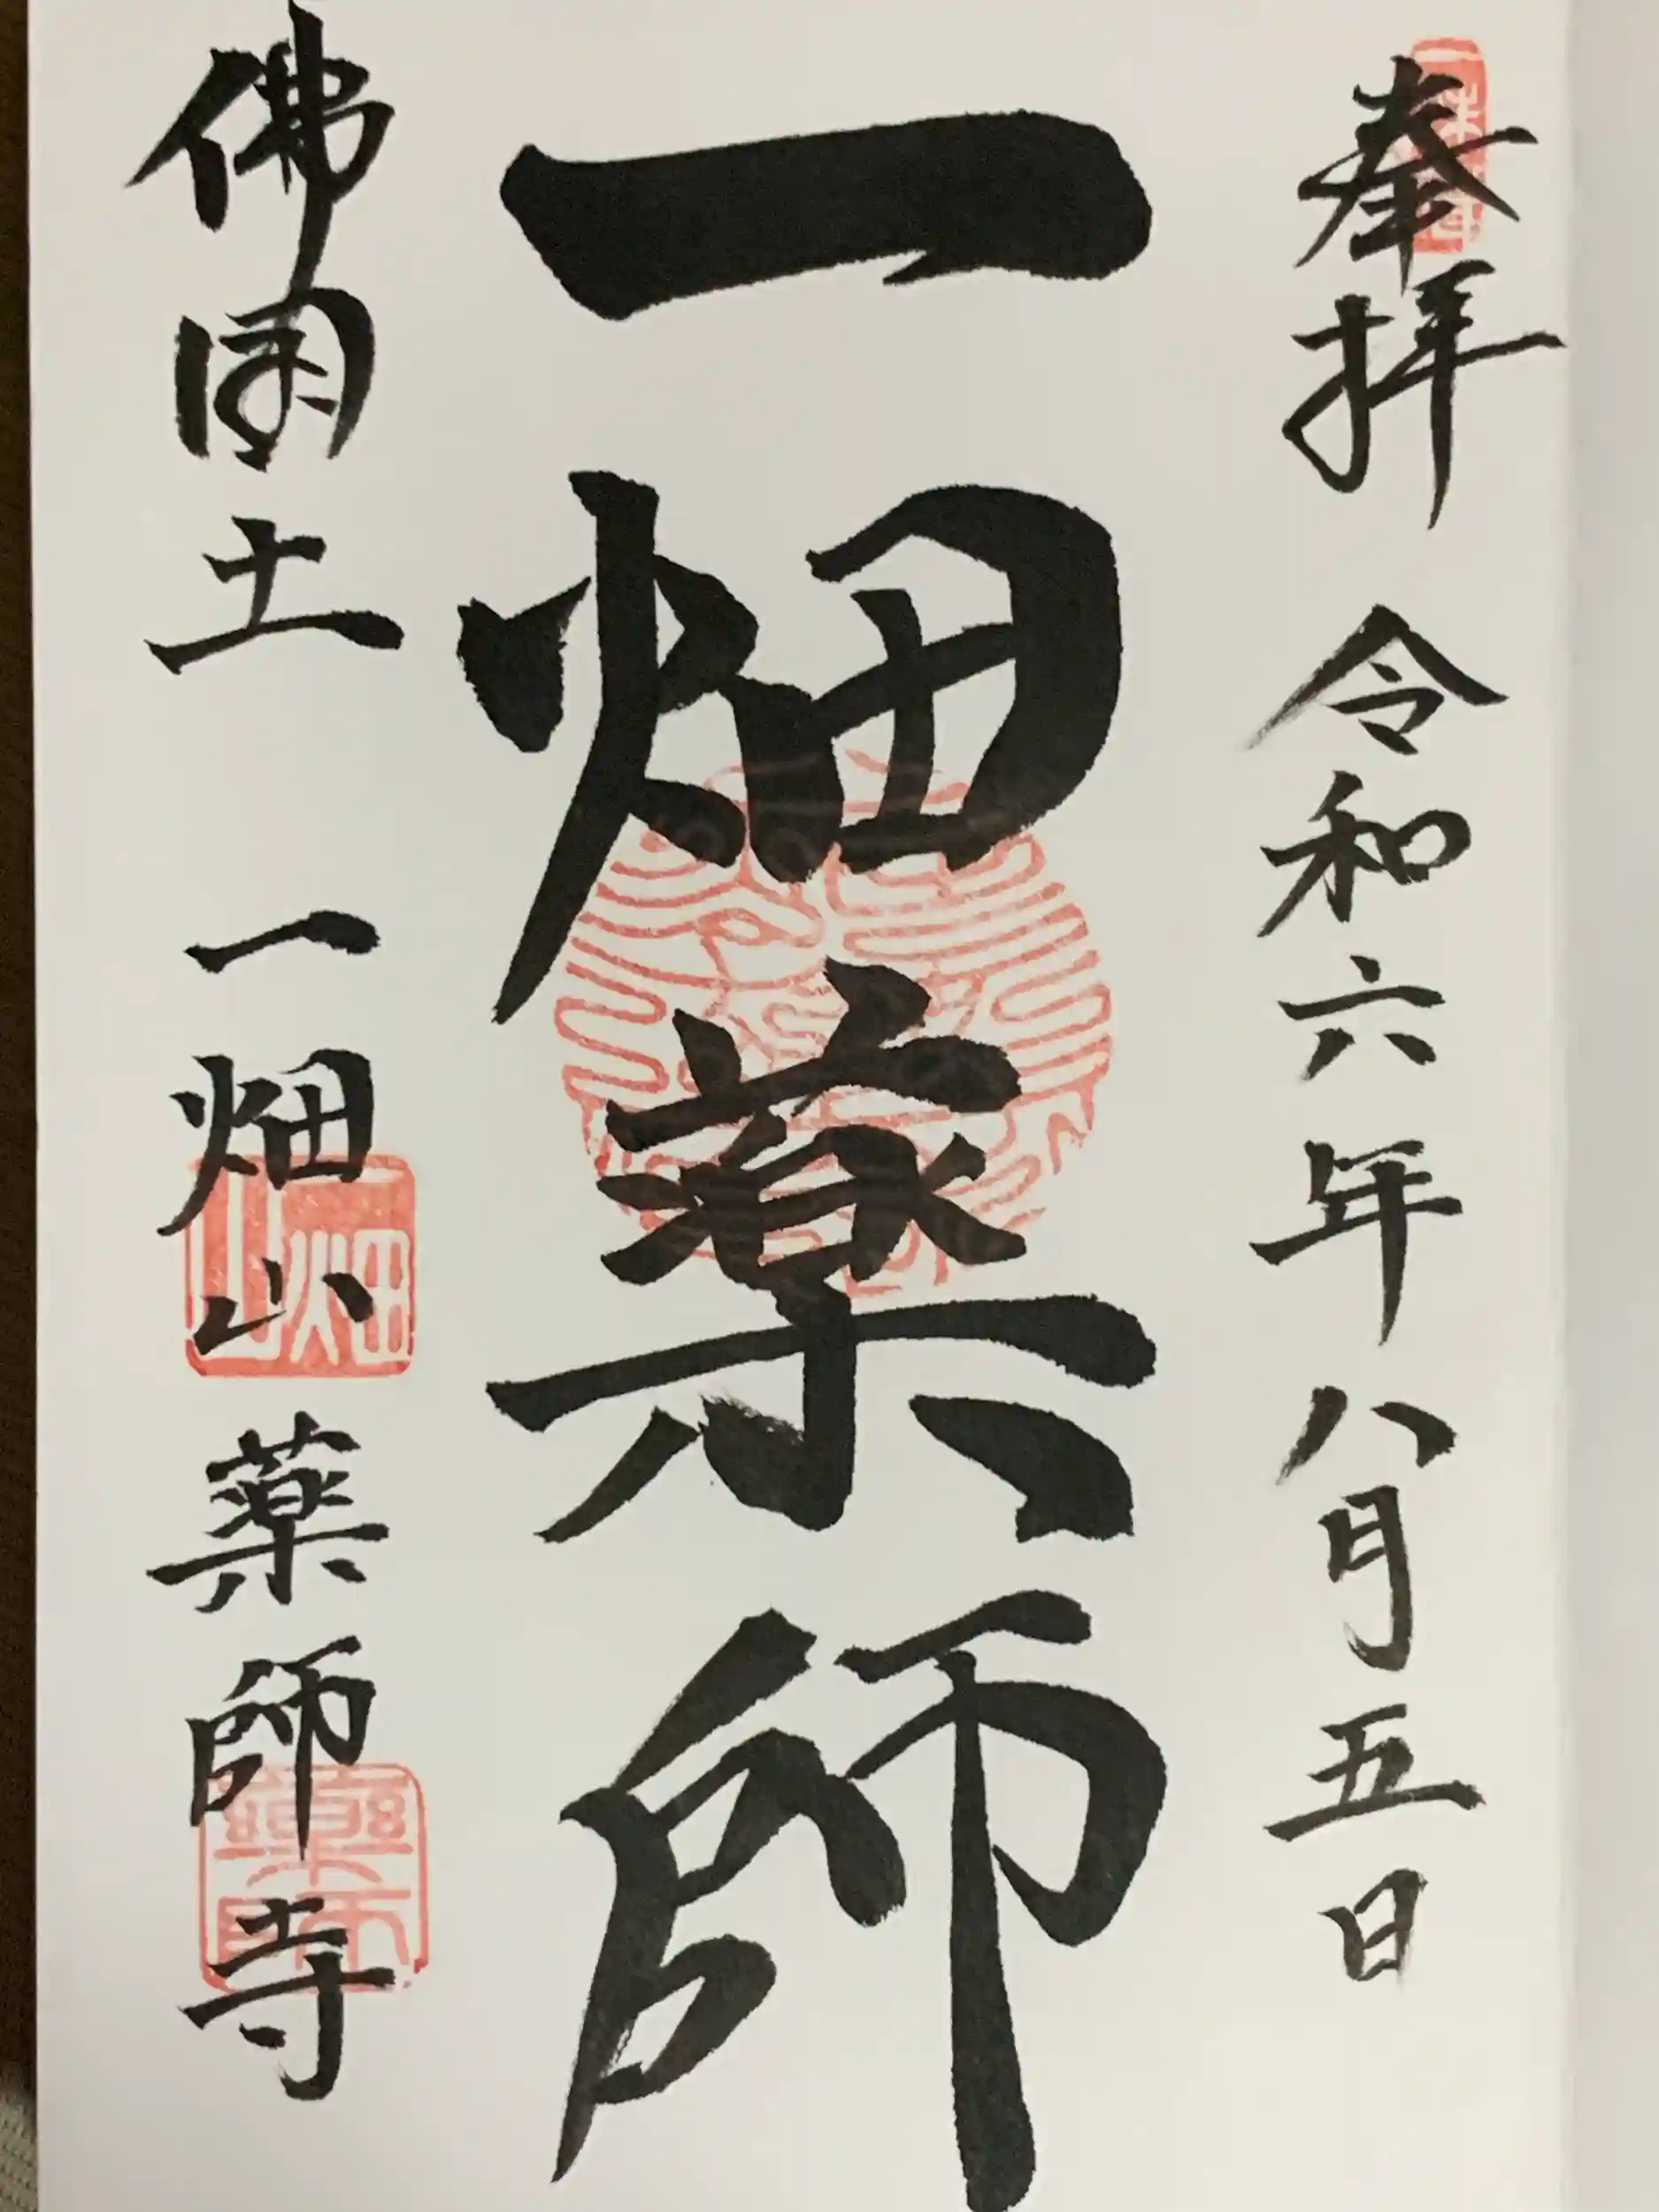 奉拝 令和六年 八月五日
一畑薬師
佛国土 一畑山 薬師寺